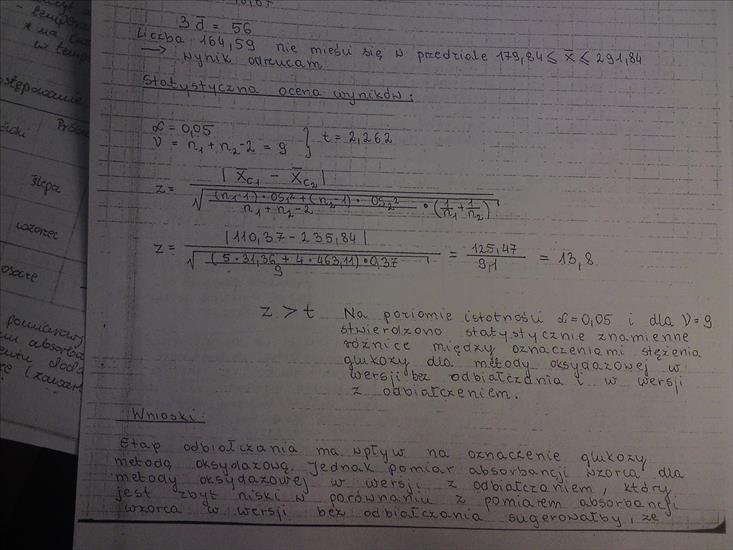 3 d̄ = 56
Liczba 164,59 nie mieści się w przedziale 179,84 ≤ x̄ ≤ 291,84
→ wynik odrzucam
Statystyczna ocena wyników:
α = 0,05
ν = n₁ + n₂ - 2 = 9 } t = 2,262
z = | x̄c₁ - x̄c₂ |
√ (n₁-1) • OS₁² + (n₂-1) • OS₂² • (1/n₁ + 1/n₂)
n₁ + n₂ - 2
z = |110,37 - 235,84| = 125,47 / 9,1 = 13,8
√ (5 • 31,36 + 4 • 463,11) • 0,37
9
z > t Na poziomie istotności α = 0,05 i dla ν = 9
stwierdzono statystycznie znamienne
różnice między oznaczeniami stężenia
glukozy dla metody oksydazowej w
wersji bez odbiałczania i w wersji
z odbiałczeniem.
Wnioski:
Etap odbiałczania ma wpływ na oznaczenie glukozy
metodą oksydazową. Jednak pomiar absorbancji wzorca dla
metody oksydazowej w wersji z odbiałczaniem, który
jest zbyt niski w porównaniu z pomiarem absorbancji
wzorca w wersji bez odbiałczania sugerowałby, że
- tempera
w temp
ostępowanie
Prób
ślepa
wzorzec
pomiarowy
absorba